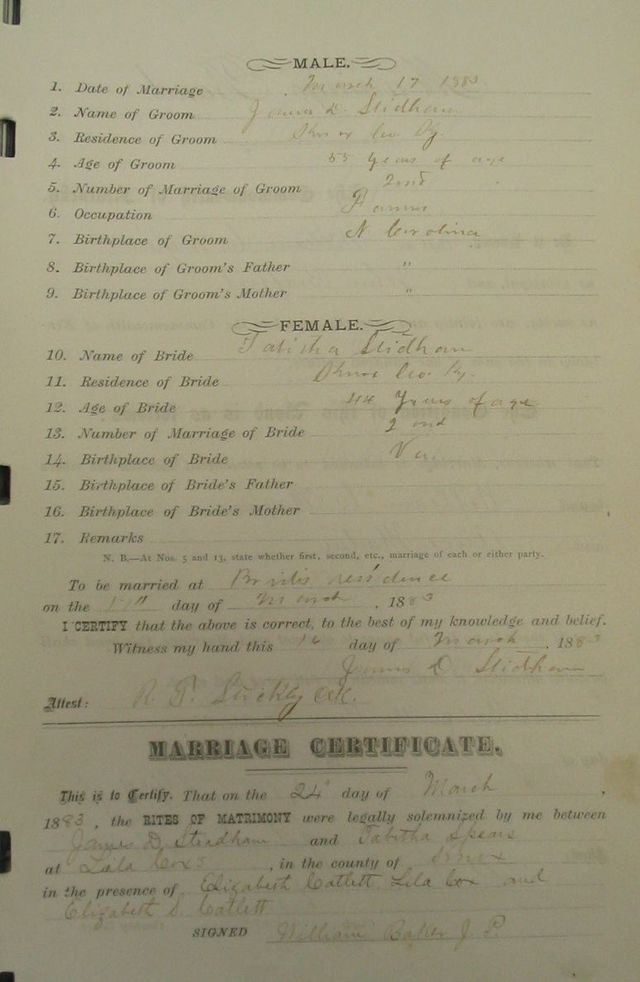 MALE.
1. Date of Marriage March 17 1883
2. Name of Groom James D. Stidham
3. Residence of Groom Knox Co. Ky.
4. Age of Groom 55 years of age
5. Number of Marriage of Groom 2nd
6. Occupation Farmer
7. Birthplace of Groom N Carolina
8. Birthplace of Groom's Father "
9. Birthplace of Groom's Mother "
FEMALE.
10. Name of Bride Tabitha Stidham
11. Residence of Bride Knox Co. Ky.
12. Age of Bride 44 Years of age
13. Number of Marriage of Bride 2nd
14. Birthplace of Bride Va
15. Birthplace of Bride's Father
16. Birthplace of Bride's Mother
17. Remarks
N. B.—At Nos. 5 and 13, state whether first, second, etc., marriage of each or either party.
To be married at residence
on the 17th day of March, 1883
I CERTIFY that the above is correct, to the best of my knowledge and belief.
Witness my hand this 16 day of March, 1883
James D. Stidham
Attest: R. T.
MARRIAGE CERTIFICATE.
This is to Certify. That on the 24 day of March,
1883, the RITES OF MATRIMONY were legally solemnized by me between
James D. Steadham and Tabitha Spears
at Lila Coxs, in the county of Knox
in the presence of Elizabeth Catlett, Lila Cox and
Elizabeth S. Catlett
SIGNED William Baker J. P.